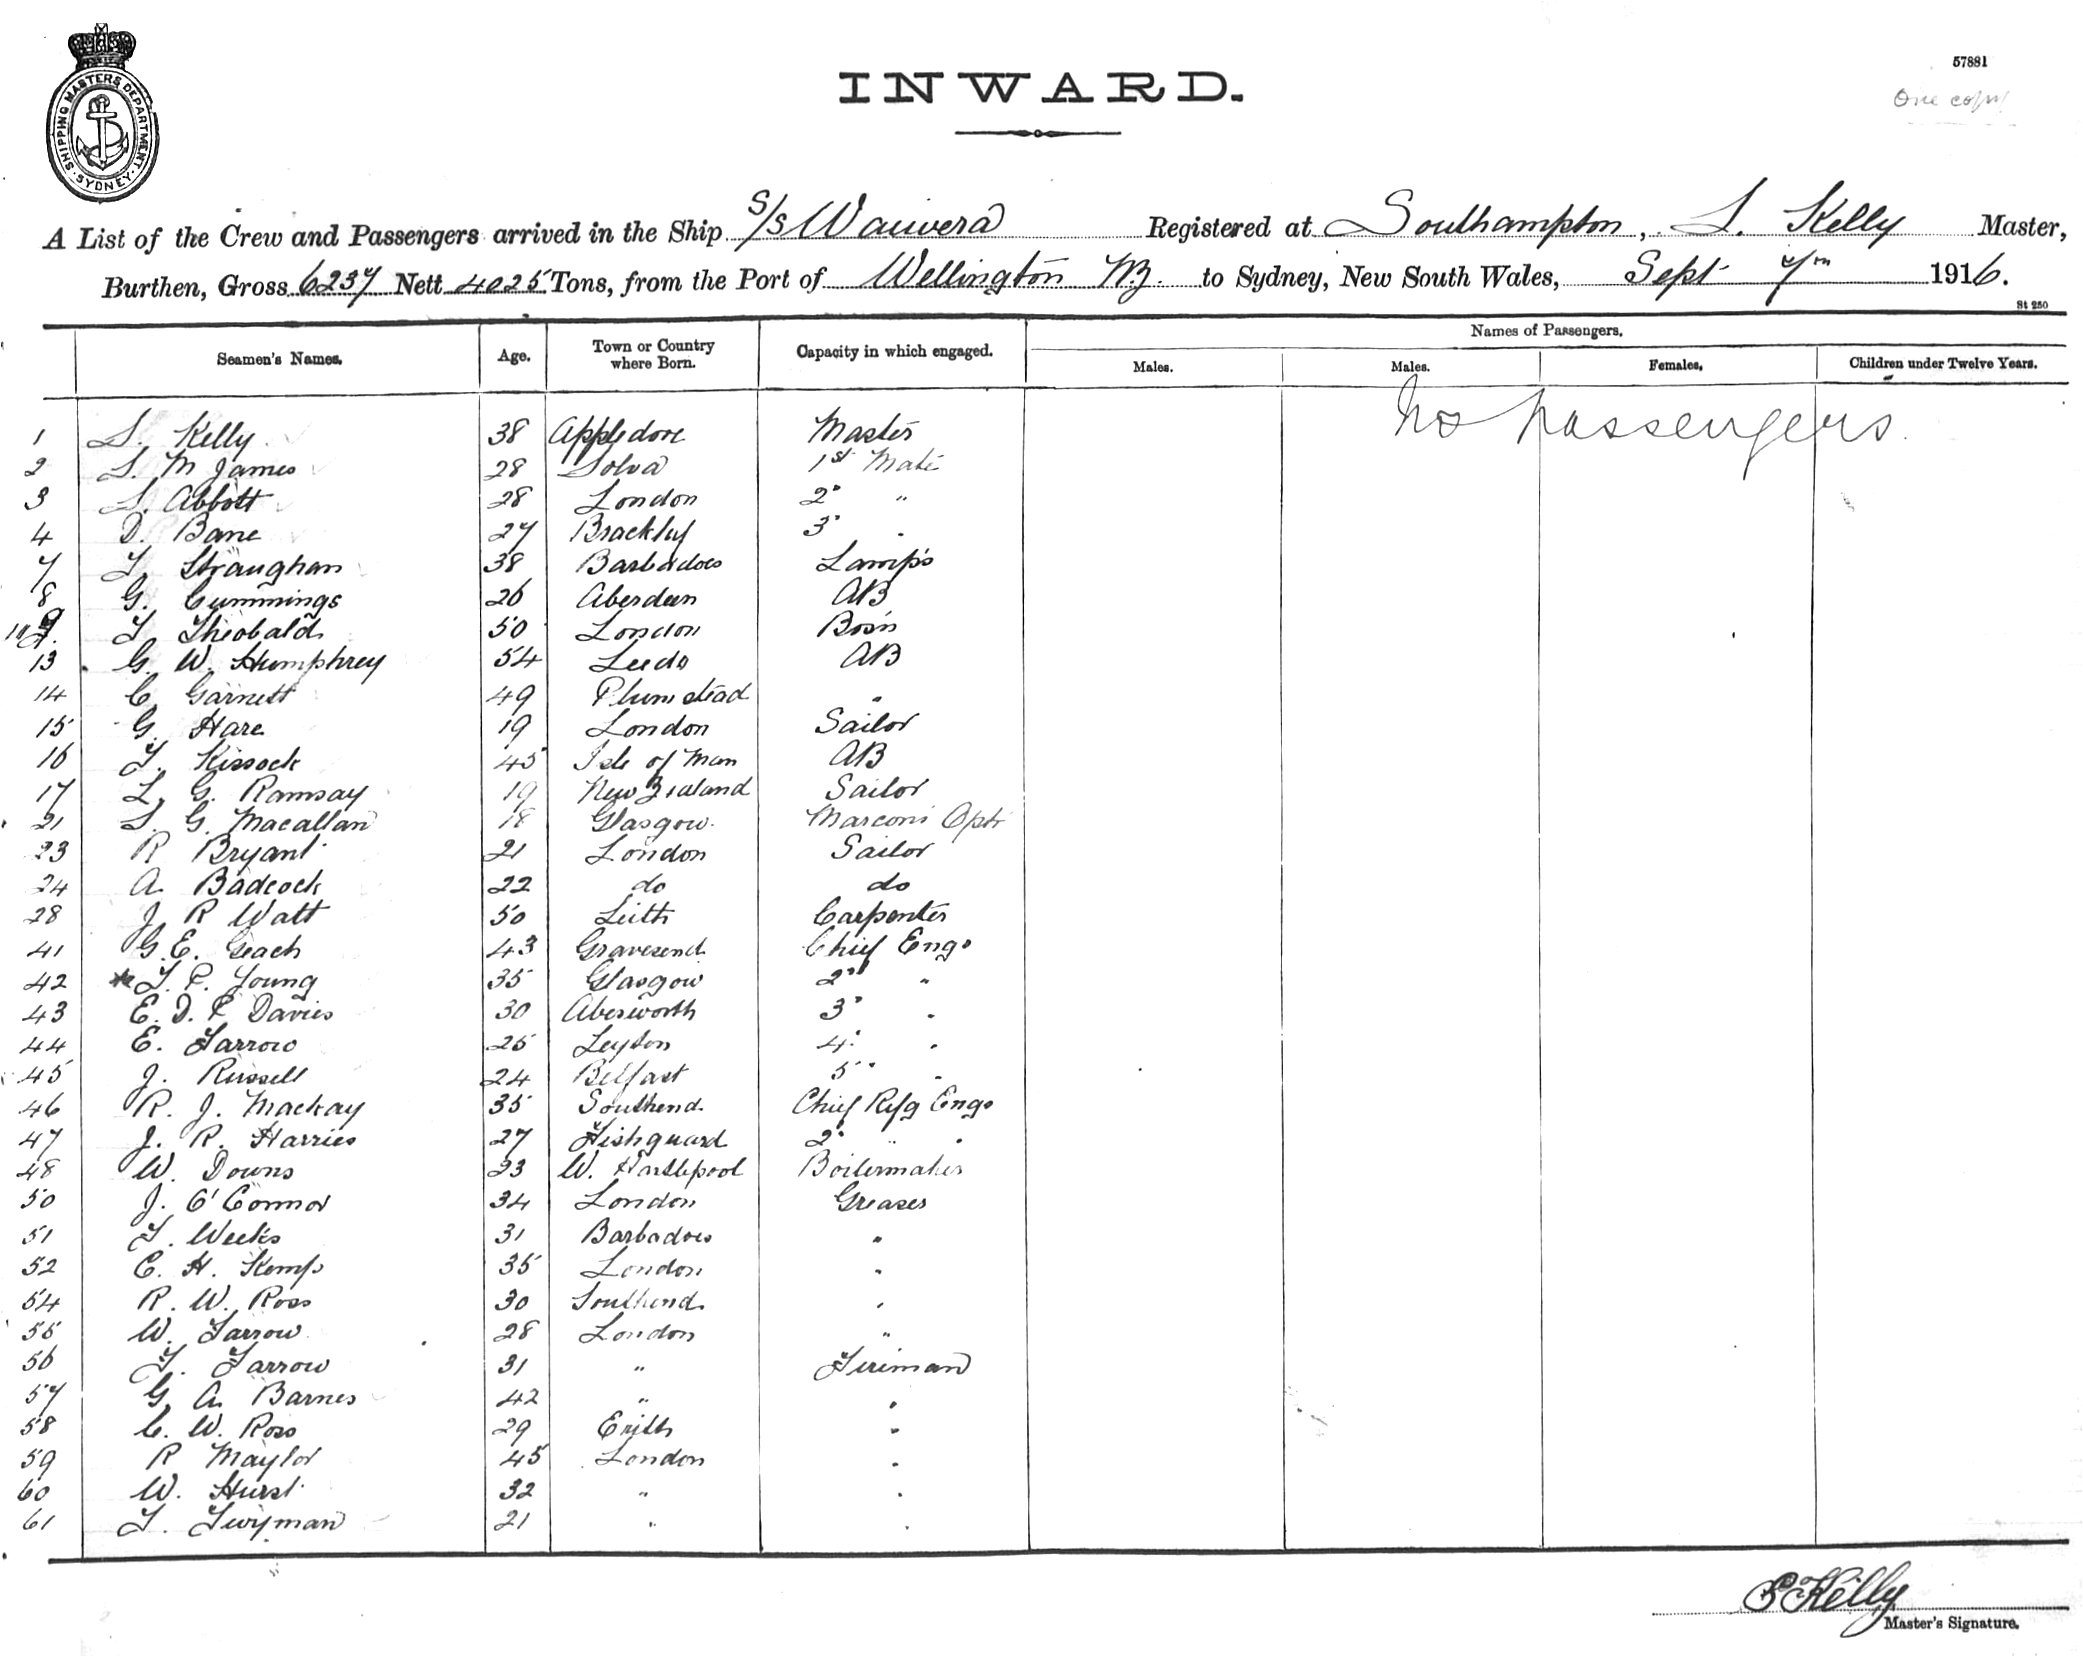 SHIPPING MASTERS DEPARTMENT
SYDNEY
INWARD.
57881
One copy
A List of the Crew and Passengers arrived in the Ship S/S Waiwera Registered at Southampton, S. Kelly Master,
Burthen, Gross 6237 Nett 4025 Tons, from the Port of Wellington N.Z. to Sydney, New South Wales, Sept 7th 1916.
St 250
Seamen's Names. Age. Town or Country where Born. Capacity in which engaged. Names of Passengers.
Males. Males. Females. Children under Twelve Years.
No passengers.
1 S. Kelly 38 Appledore Master
2 S. M James 28 Solva 1st Mate
3 S. Abbott 28 London 2° "
4 D. Bane 27 Brackley 3° "
7 T. Straughan 38 Barbadoes Lamps
8 G. Cummings 26 Aberdeen AB
9 T. Theobald 50 London Bosn
13 G. W. Humphrey 54 Leeds AB
14 C. Garnett 49 Plumstead "
15 G. Hare 19 London Sailor
16 T. Kissock 45 Isle of Man AB
17 L. G. Ramsay 19 New Zealand Sailor
21 S. G. Macallan 18 Glasgow Marconi Optr
23 R Bryant 21 London Sailor
24 A. Badcock 22 do do
28 J. R Watt 50 Leith Carpenter
41 G. E. Geach 43 Gravesend Chief Engr
42 T. P. Young 35 Glasgow 2° "
43 E. D. P Davies 30 Aberworth 3° "
44 E. Tarrow 25 Leyton 4° "
45 J. Russell 24 Belfast 5° "
46 R. J. Mackay 35 Southend Chief Refg Engr
47 J. R. Harries 27 Fishguard 2° " "
48 W. Downs 23 W. Hartlepool Boilermaker
50 J. O'Connor 34 London Greaser
51 T. Weeks 31 Barbadoes "
52 C. H. Kemp 35 London "
54 R. W. Ross 30 Southend "
55 W. Tarrow 28 London "
56 T. Tarrow 31 " Fireman
57 G. A. Barnes 42 " "
58 C. W. Ross 29 Erith "
59 R Maylor 45 London "
60 W. Hurst 32 " "
61 T. Twyman 21 " "
S Kelly
Master's Signature.